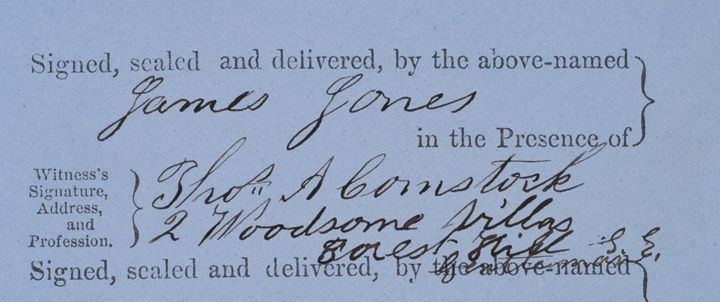 Signed, sealed and delivered, by the above-named
James Jones
in the Presence of
Witness's
Signature,
Address,
and
Profession.
Thos. A Comstock
2 Woodsome Villas
Forest Hill S. E.
Gentleman
Signed, sealed and delivered, by the above-named